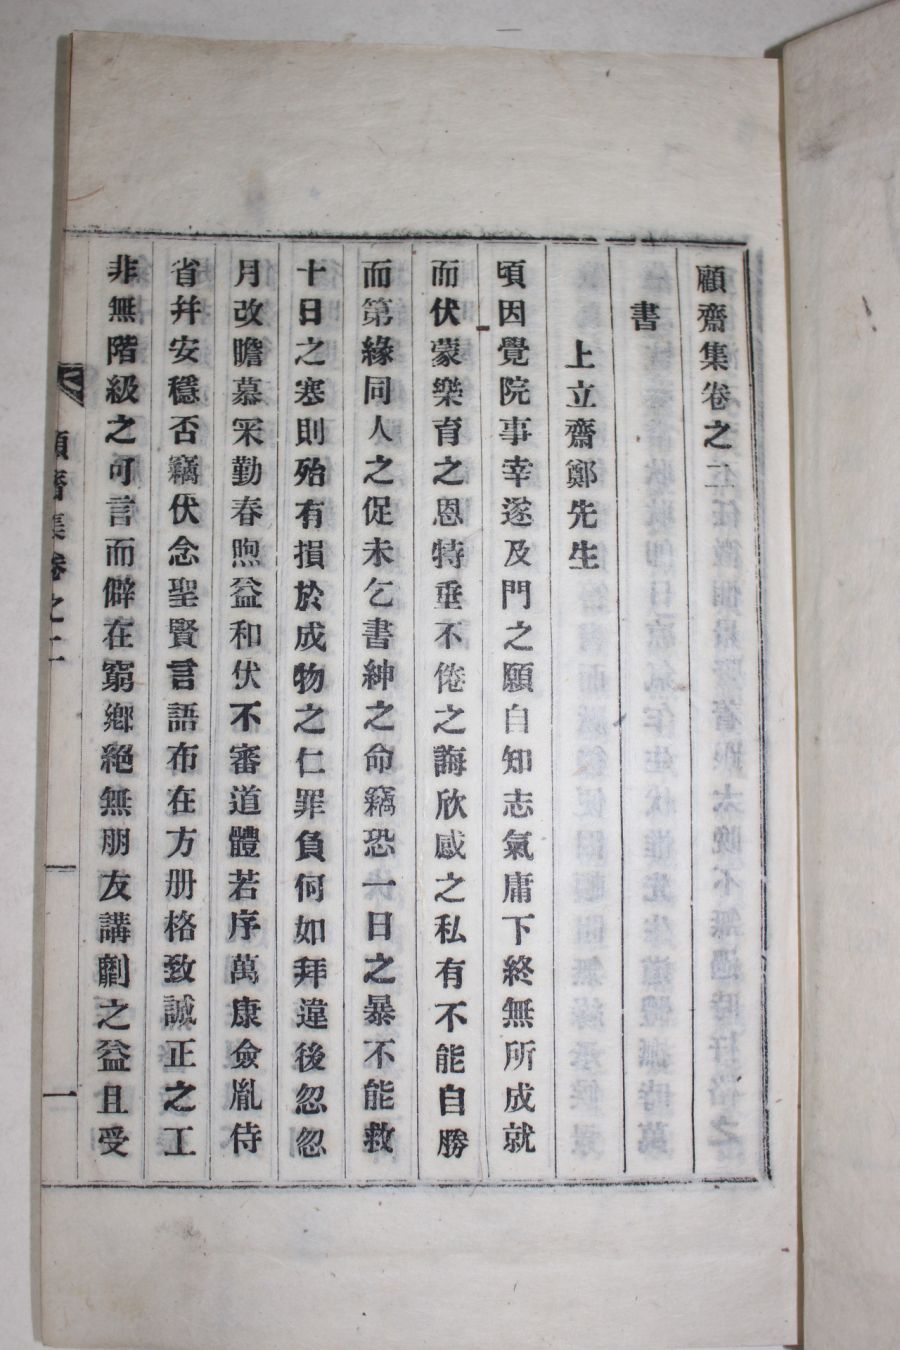 顧齋集卷之二
書
上立齋鄭先生
頃因覺院事幸遂及門之願自知志氣庸下終無所成就
而伏蒙樂育之恩特垂不倦之誨欣感之私有不能自勝
而第緣同人之促未乞書紳之命竊恐一日之暴不能救
十日之寒則殆有損於成物之仁罪負何如拜違後忽忽
月改瞻慕冞勤春煦益和伏不審道體若序萬康僉胤侍
省并安穩否竊伏念聖賢言語布在方册格致誠正之工
非無階級之可言而僻在窮鄉絕無朋友講劘之益且受
顧齋集卷之二
一